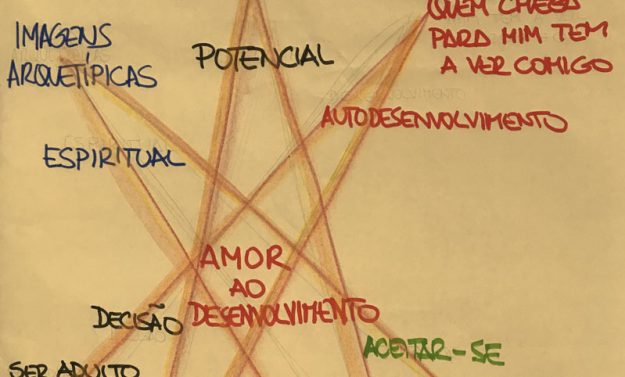 QUEM CHEGA
PARA MIM TEM
A VER COMIGO
IMAGENS
ARQUETÍPICAS
POTENCIAL
AUTODESENVOLVIMENTO
ESPIRITUAL
AMOR
AO
DESENVOLVIMENTO
DECISÃO
ACEITAR-SE
SER ADULTO